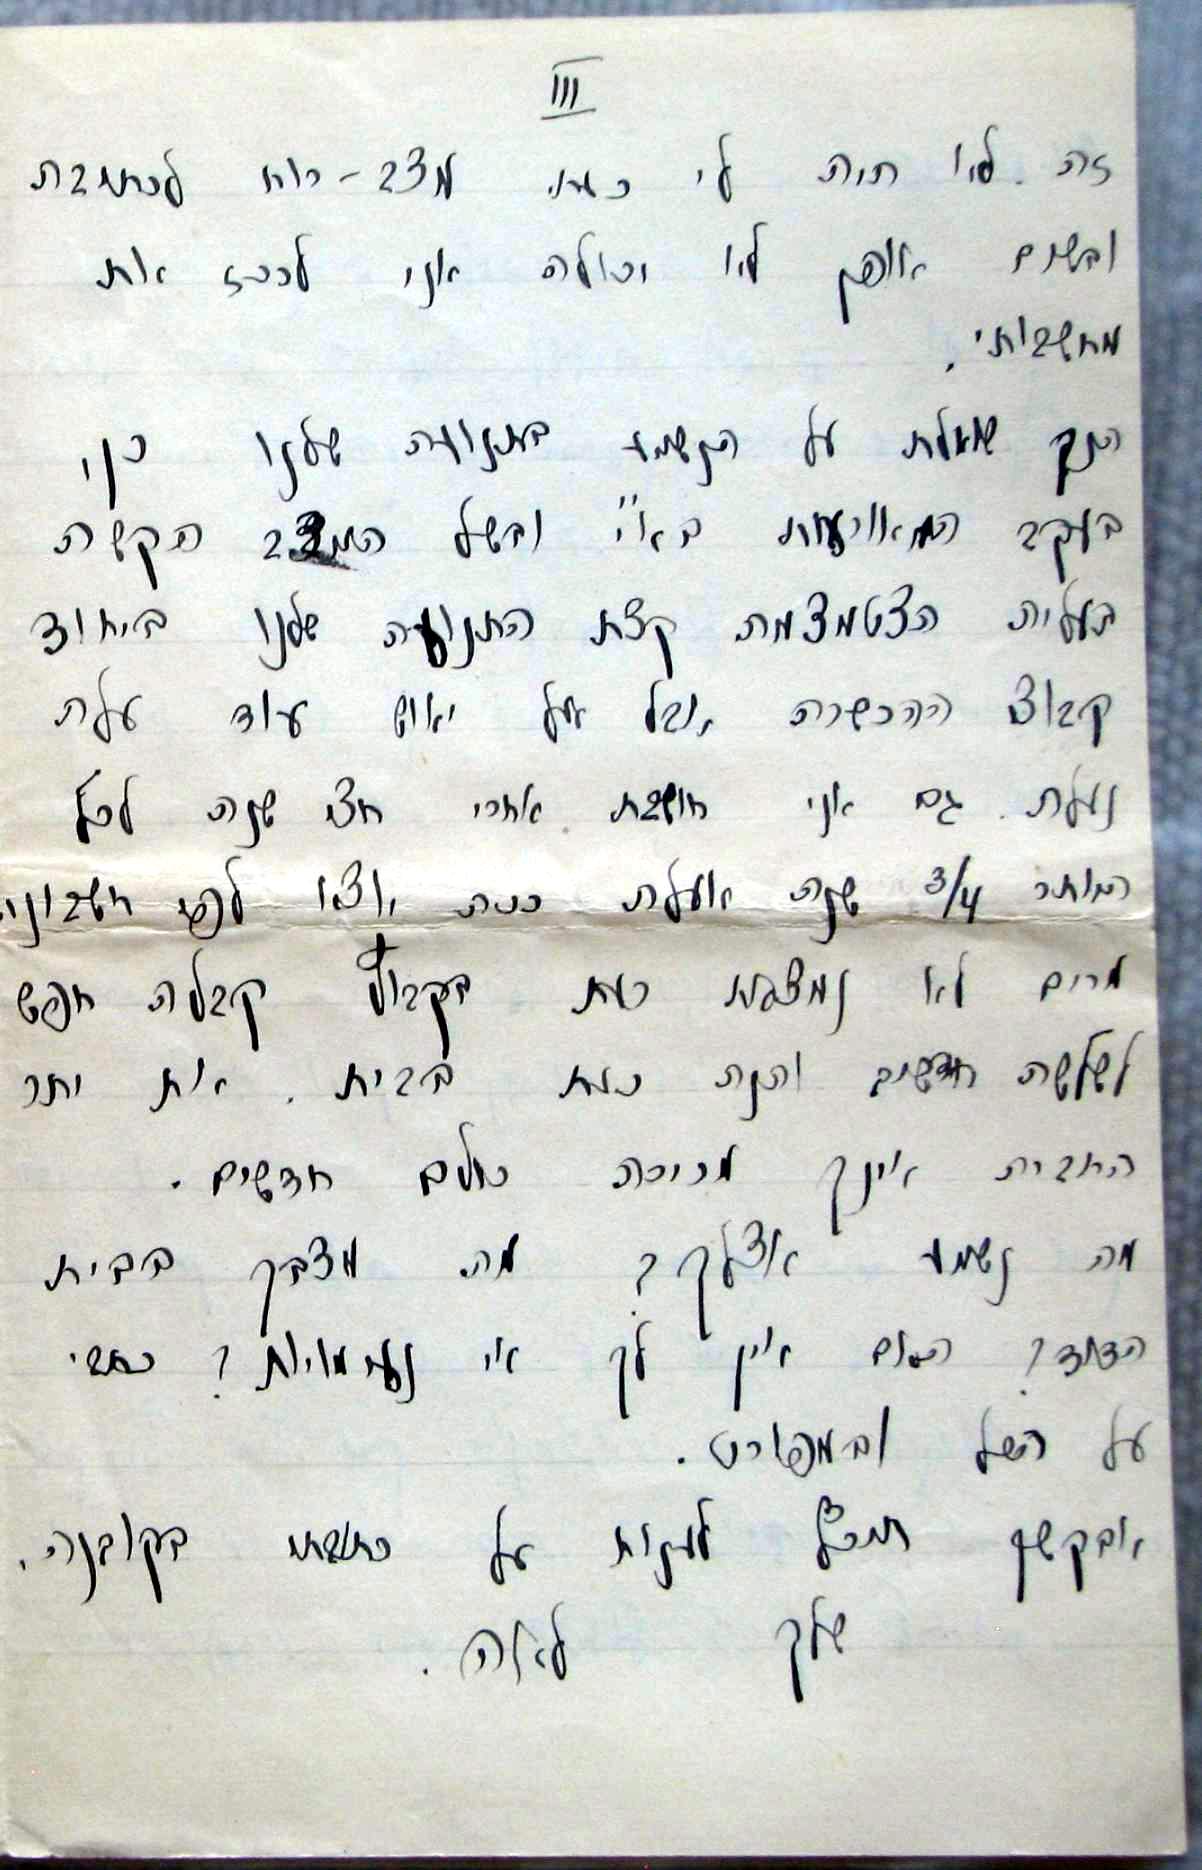 III
זה. לא היה לי כעת מצב-רוח לכתיבת
ובשום אופן לא יכולה אני לרכז את
מחשבותי.
הנך שואלת על הנשמע בתנועה שלנו
בעקב המאורעות בא"י ובשל המצב הקשה
בעליה הצטמצמה קצת התנועה שלנו ביחוד
קבוצי ההכשרה אבל אל יאוש עוד עלה
נעלה. גם אני חושבת אחרי חצי שנה לכל
היותר 3/4 שנה אעלה ככה יוצא לפי חשבוני.
מרים לא נמצאת כעת בקבוץ קבלה חפש
לשלשה חדשים והנה כעת בבית. את יתר
החברות אינך מכירה כולם חדשים.
מה נשמע אצלך? מה מצבך בבית
הדוד? האם אין לך אי נעימויות? כתבי
על הכל ובמפורט.
אבקשך תמכ"ל לענות על כתובתי בקובנה.
שלך לאה.